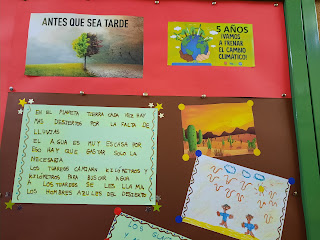 ANTES QUE SEA TARDE
5 AÑOS
¡VAMOS
A FRENAR
EL CAMBIO
CLIMÁTICO!
EN EL PLANETA TIERRA CADA VEZ HAY
MAS DESIERTOS POR LA FALTA DE
LLUVIAS
EL AGUA ES MUY ESCASA POR
ESO HAY QUE GASTAR SOLO LA
NECESARIA
LOS TUAREGS CAMINAN KILOMETROS Y
KILOMETROS PARA BUSCAR AGUA
LOS TUAREGS SE LES LLAMA
LOS HOMBRES AZULES DEL DESIERTO
LOS